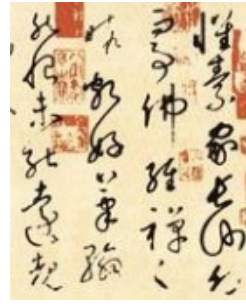 懷素家長沙幼
而事佛經禪之
暇頗好筆翰
然恨未能遠覩